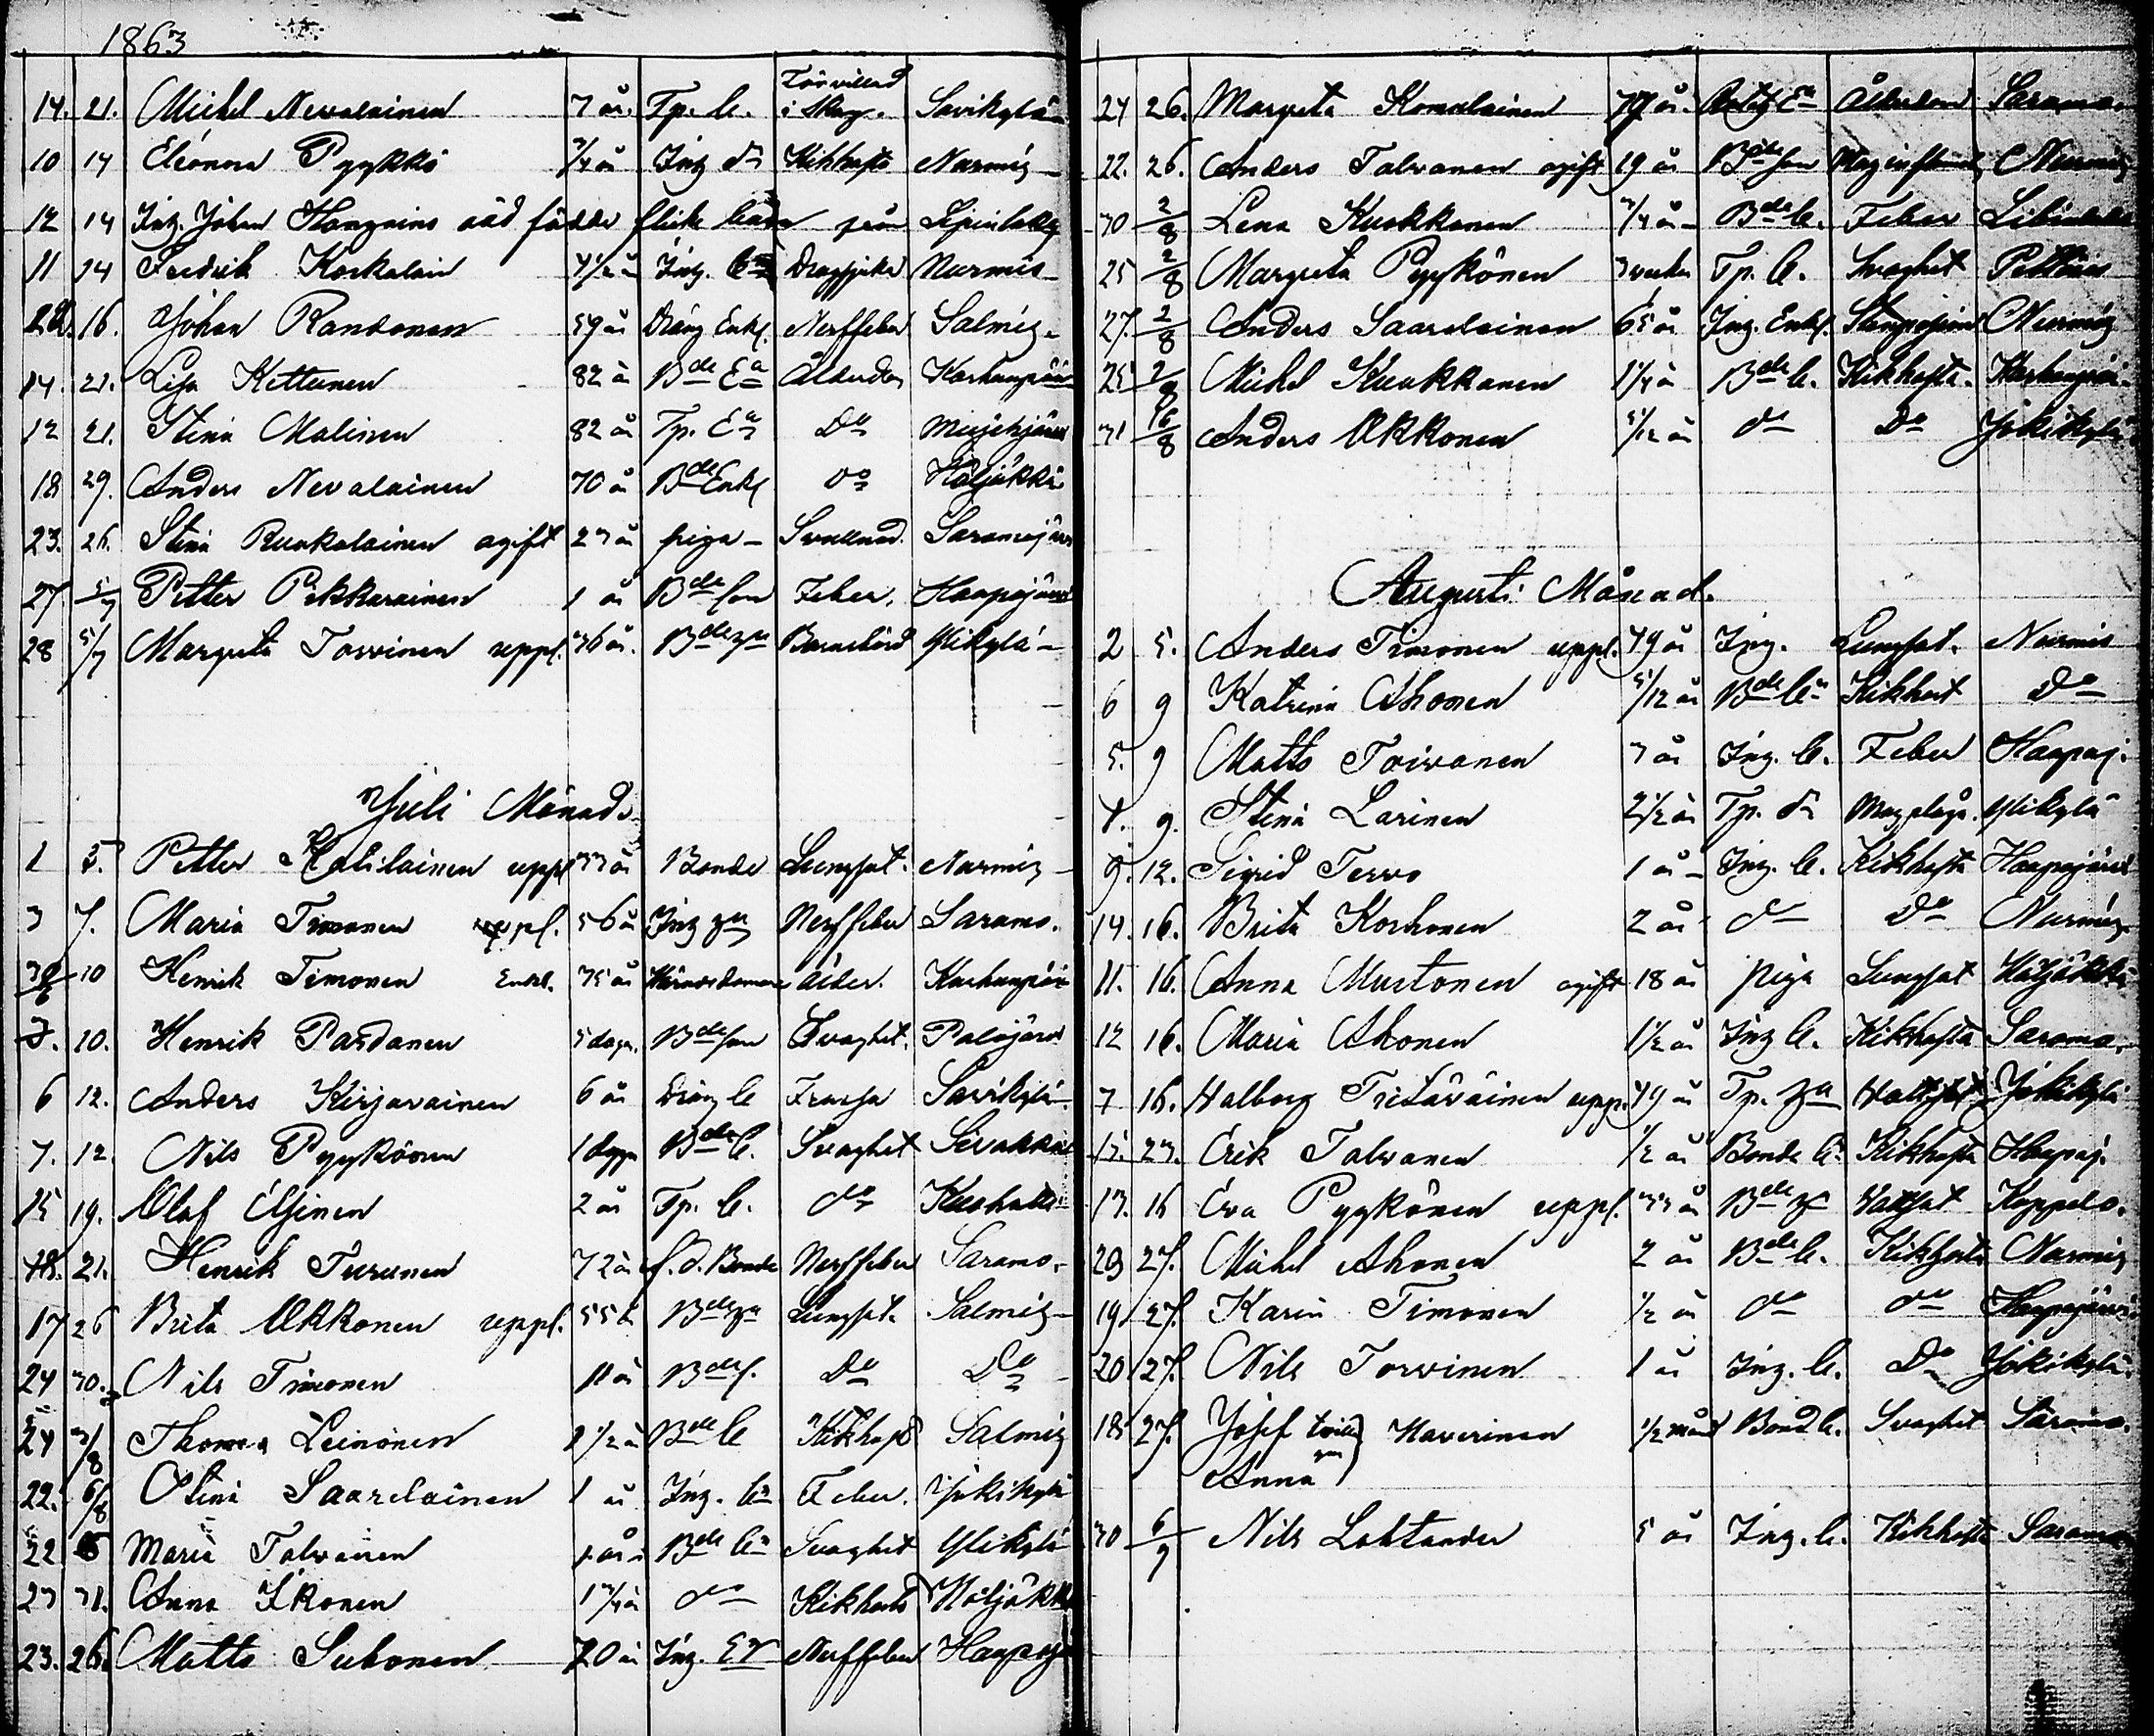 1863
14. 21. Michel Nevalainen 7 år. Tp. b. Förvillad i skog. Savikylä
10 14 Eleonora Pyykkö 3/4 år Inh. dr Kikhosta Nurmis
12 14 Inh. Johan Hangains död födde flicka barn från Lipinlaks
11 14 Fredrik Korkalain 4 1/2 år Inh. bn Dragsjuka Nurmis
16. Johan Randonen 59 år Dräng Enkl. Nerffeber Salmis
14. 21. Lisa Kettunen 82 år Bde Ea Ålderdom Karhunpää
12 21. Stina Malinen 82 år Tp. Ea Do
18 29. Anders Nevalainen 70 år Bde Enkl do Höljäkkä
23. 26. Stina Ruokolainen ogift 23 år piga Svullnad. Saramojärvi
27 5/7 Petter Pekkarainen 1 år Bde son Feber. Haapajärvi
28 5/7 Margreta Torvinen uppl. 36 år. Bde Barnsbörd Ylikylä
Juli Månad
1 5. Petter Matilainen uppl 33 år Bonde Lungsot. Nurmis
3 7. Maria Timonen uppl. 56 år Inh Nerffeber Saramo.
30/6 10 Henrik Timonen Enkl. 75 år Ålder. Karhunpää
7. 10. Henrik Pardanen 5 dagar Bde son Svaghet. Palojärvi
6 12. Anders Kirjavainen 6 år Dräng b Frossa Savikylä
7. 12. Nils Pyykönen 1 dygn Bde b. Svaghet Sivakka
15 19. Olof Elsinen 2 år Tp. b. do Kuohatti
18. 21. Henrik Turunen 72 år f. d. Bonde Nerffeber Saramo.
17 26 Brita Ukkonen uppl. 55 år Bde Lungsot. Salmis
24 30. Nils Timonen 11 år Bde s. Do Do
24 3/8 Thomas Leinonen 1 1/2 år Bde b Kikhost Salmis
22. 6/8 Stina Saarelainen 1 år Inh. bn Feber. Jokikylä
22 Maria Talvainen 1 år. Bde bn Svaghet Ylikylä
23 31. Anna Ikonen 1 3/4 år do Kikhosta Höljäkkä
23. 26. Matts Suhonen 70 år Inh. Er Nerffeber Haapajä
24 26. Margreta Komulainen 77 år. Ea Ålderdom Saramo.
22. 26. Anders Talvanen ogift 19 år Bde son Nurmis
30 2/8 Lena Kuokkanen 3/4 år Bde b. Feber
25 2/8 Margreta Pyykönen 3 veckor Tp. b. Svaghet
27. 2/8 Anders Saarelainen 65 år Inh. Enkl. Nurmis
25 2/8 Michel Kuokkanen 1 1/4 år Bde b. Kikhosta. Karhunpää.
31 16/8 Anders Ukkonen 5/12 år do Do Jokikylä
Augusti Månad.
2 5. Anders Timonen uppl. 49 år Inh. Lungsot. Nurmis
6 9 Katrina Ahonen 5/12 år Bde bn Kikhost Do
5. 9 Matts Toivanen 3 år Inh. b. Feber Haapaj.
7. 9. Stina Larinen 2 1/2 år Tp. dr Magplåga. Ylikylä
9. 12. Sigrid Tervo 1 år Inh. b. Kikhosta Haapajärvi
14. 16. Brita Korhonen 2 år do Do Nurmis
11. 16. Anna Mustonen ogift 18 år piga Lungsot Höljäkkä
12 16. Maria Ahonen 1 1/2 år Inh b. Kikhosta Saramo.
7 16. Walborg Tritäväinen uppl. 49 år Tp. Vattsot Jokikylä
15. 23. Erik Talvanen 1/2 år Bonde b. Kikhosta Haapaj.
13. 16 Eva Pyykönen uppl. 33 år Bde Vattsot Koppelo.
23 27. Michel Ahonen 2 år Bde b. Kikhosta Nurmis
19. 27. Karin Timonen 1/2 år do do Haapajärvi
20 27. Nils Torvinen 1 år Inh. b. Do Jokikylä.
18 27. Josef tvillingar Haverinen 1/2 månd Bond b. Svaghet Saramo.
Anna
30 6/9 Nils Lohtander 5 år Inh. b. Kikhosta Saramo